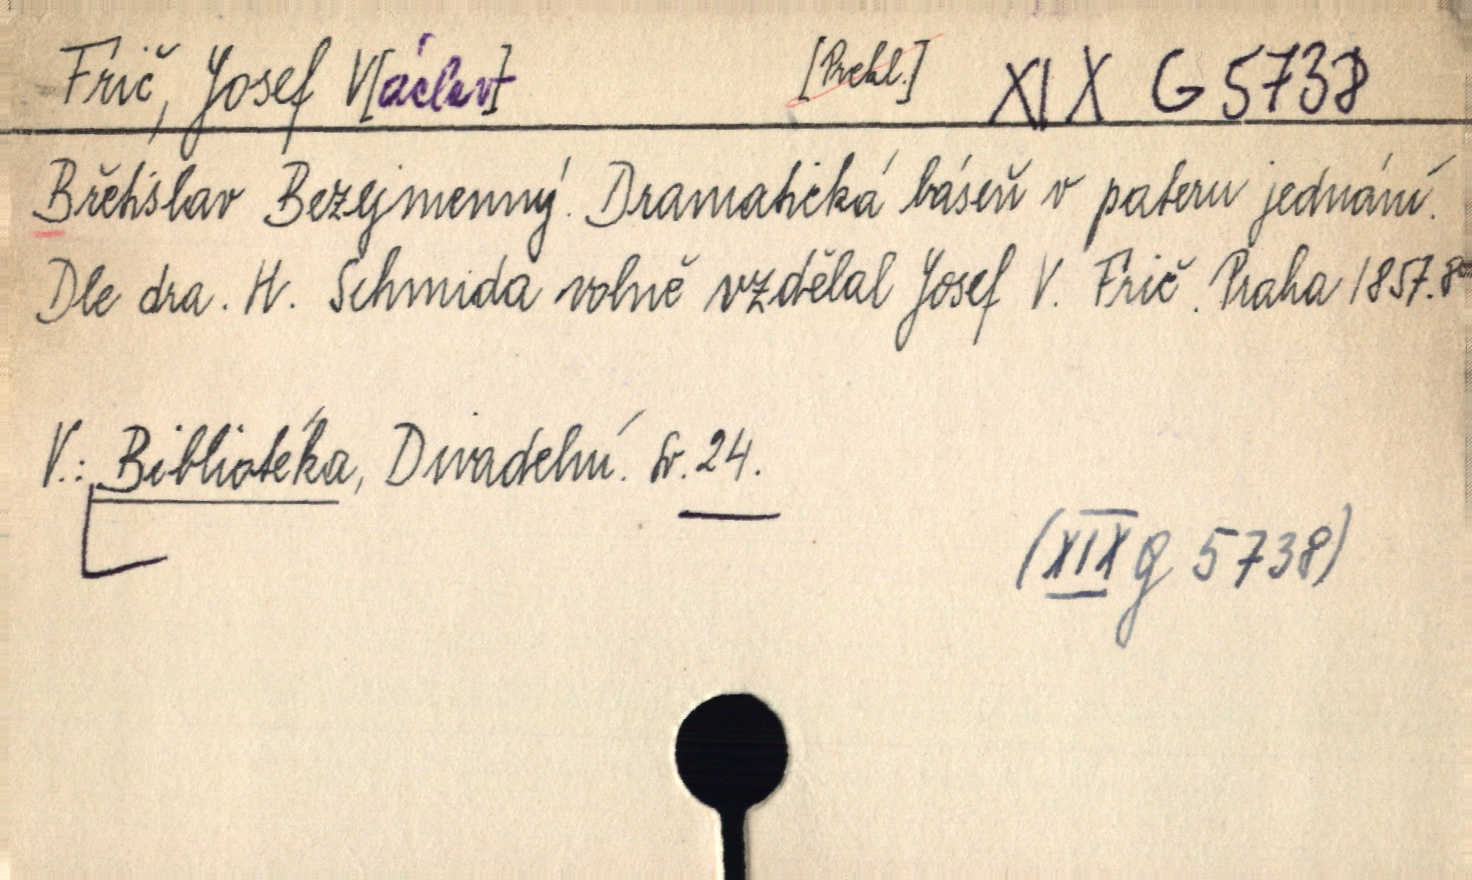 Frič, Josef V[áclav] [Překl.] XIX G 5738
Břetislav Bezejmenný. Dramatická báseň v pateru jednání.
Dle dra. H. Schmida volně vzdělal Josef V. Frič. Praha 1857. 8°
V.: Bibliotéka, Divadelní. Sv. 24.
(XIX g 5738)